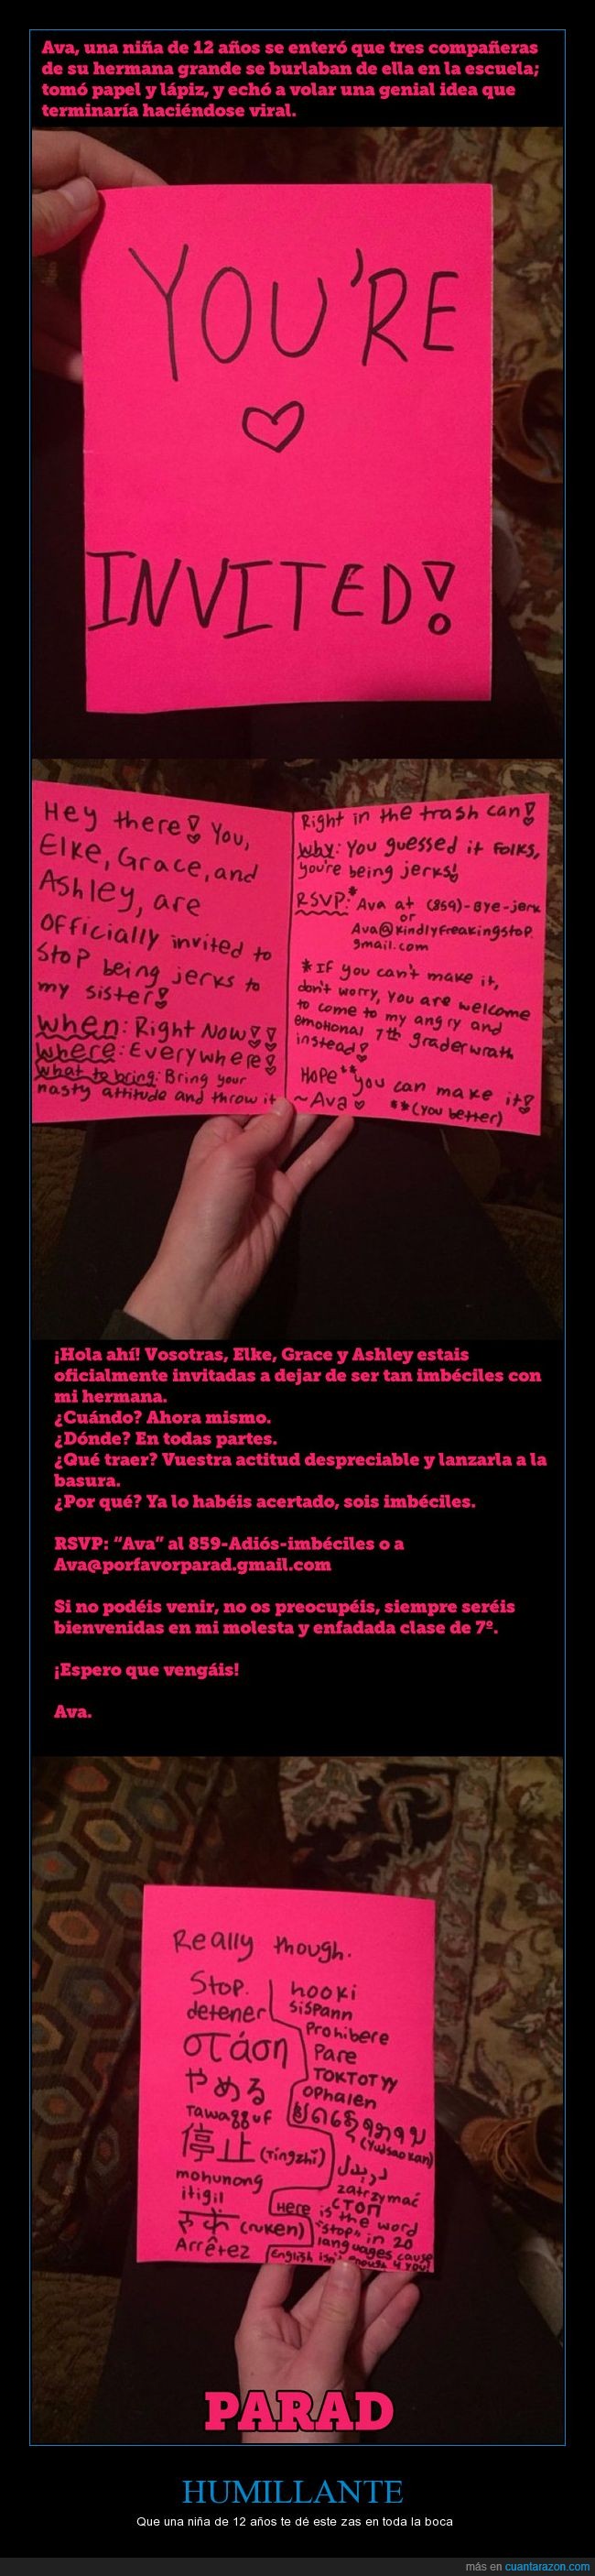 Ava, una niña de 12 años se enteró que tres compañeras
de su hermana grande se burlaban de ella en la escuela;
tomó papel y lápiz, y echó a volar una genial idea que
terminaría haciéndose viral.
YOU'RE
INVITED!
Hey there! You,
Elke, Grace, and
Ashley, are
officially invited to
stop being jerks to
my sister!
when: Right Now!!
where: Everywhere!
what to bring: Bring your
nasty attitude and throw it
Right in the trash can!
Why: You guessed it folks,
you're being jerks!
RSVP:* Ava at (859)-Bye-jerk
or
Ava@kindlyfreakingstop.
gmail.com
*If you can't make it,
don't worry, you are welcome
to come to my angry and
emotional 7th grader wrath
instead!
HOPE** you can make it!
~Ava **(you better)
¡Hola ahí! Vosotras, Elke, Grace y Ashley estais
oficialmente invitadas a dejar de ser tan imbéciles con
mi hermana.
¿Cuándo? Ahora mismo.
¿Dónde? En todas partes.
¿Qué traer? Vuestra actitud despreciable y lanzarla a la
basura.
¿Por qué? Ya lo habéis acertado, sois imbéciles.
RSVP: “Ava” al 859-Adiós-imbéciles o a
Ava@porfavorparad.gmail.com
Si no podéis venir, no os preocupéis, siempre seréis
bienvenidas en mi molesta y enfadada clase de 7º.
¡Espero que vengáis!
Ava.
Really though.
Stop.
detener
στάση
やめる
Tawaqquf
停止 (Tingzhǐ)
mohunong
itigil
(ruken)
Arrêtez
hooki
sispann
Prohibere
Pare
TOKTOTYY
ophalen
(Yudsaokan)
zatrzymać
СТОП
Here is the word
"stop" in 20
languages cause
English isn't enough 4 you!
PARAD
HUMILLANTE
Que una niña de 12 años te dé este zas en toda la boca
más en cuantarazon.com